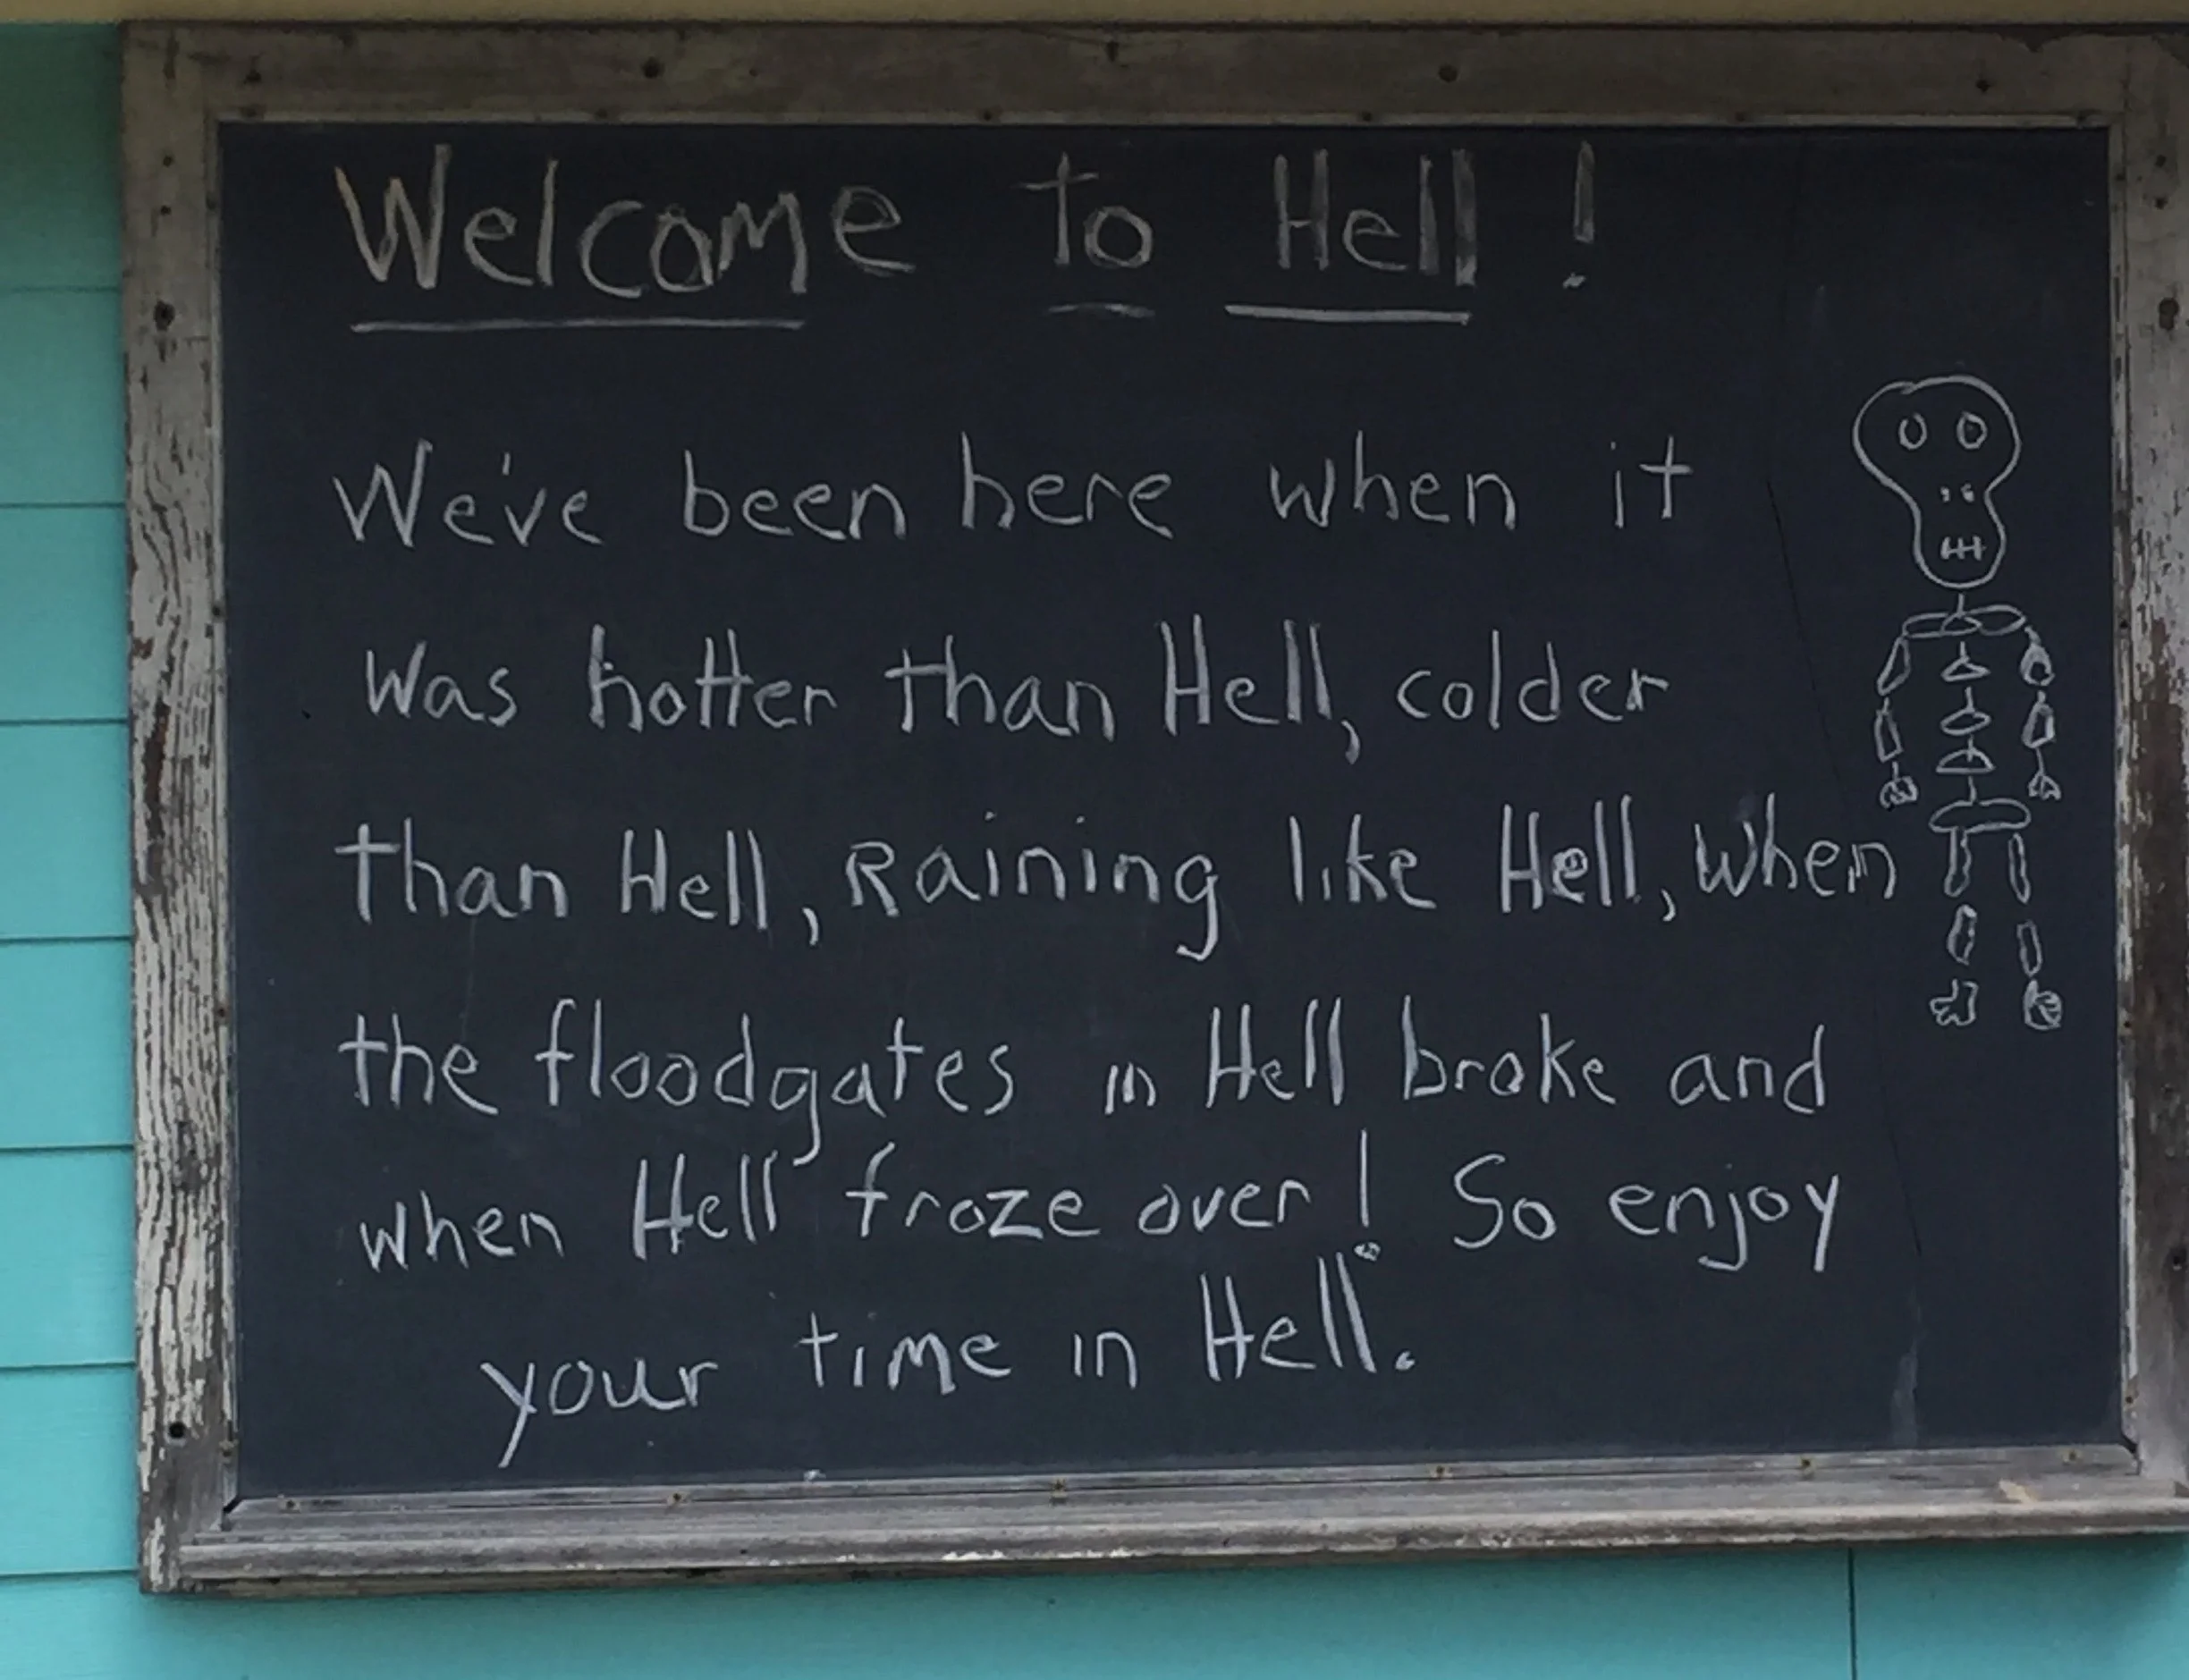 Welcome to Hell!
We've been here when it
was hotter than Hell, colder
than Hell, Raining like Hell, when
the floodgates in Hell broke and
when Hell froze over! So enjoy
your time in Hell.